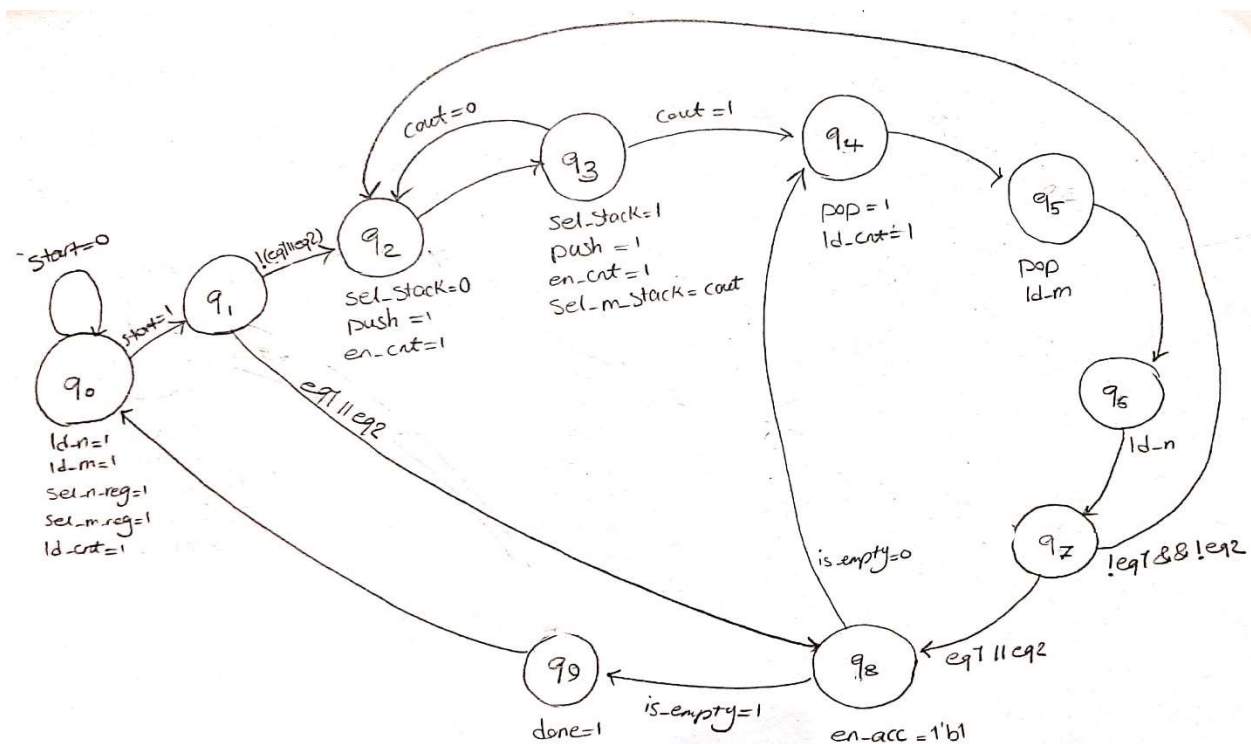 start=0
q0
ld-n=1
ld-m=1
sel-n-reg=1
sel-m-reg=1
ld-cnt=1
start=1
q1
!(eq1||eq2)
eq1||eq2
q2
sel-stack=0
push =1
en-cnt=1
cout=0
q3
sel-stack=1
push =1
en-cnt=1
sel-m-stack=cout
cout=1
q4
pop=1
ld-cnt=1
q5
pop
ld-m
q6
ld-n
q7
!eq1 && !eq2
eq1 || eq2
q8
en-acc =1'b1
is-empty=0
is-empty=1
q9
done=1